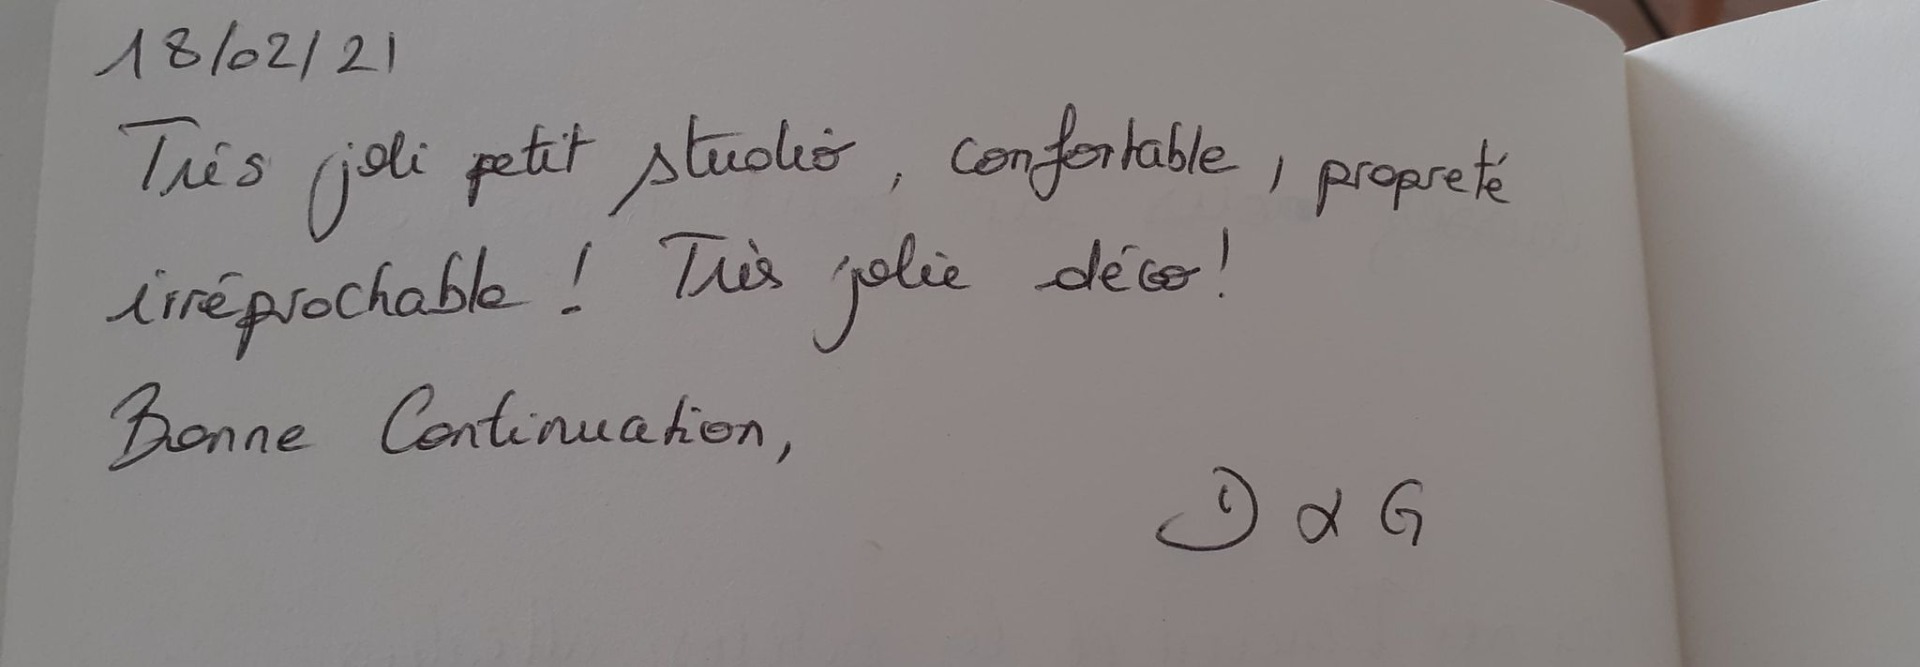 18/02/21
Très joli petit studio, confortable, propreté
irréprochable ! Très jolie déco !
Bonne Continuation,
D & G